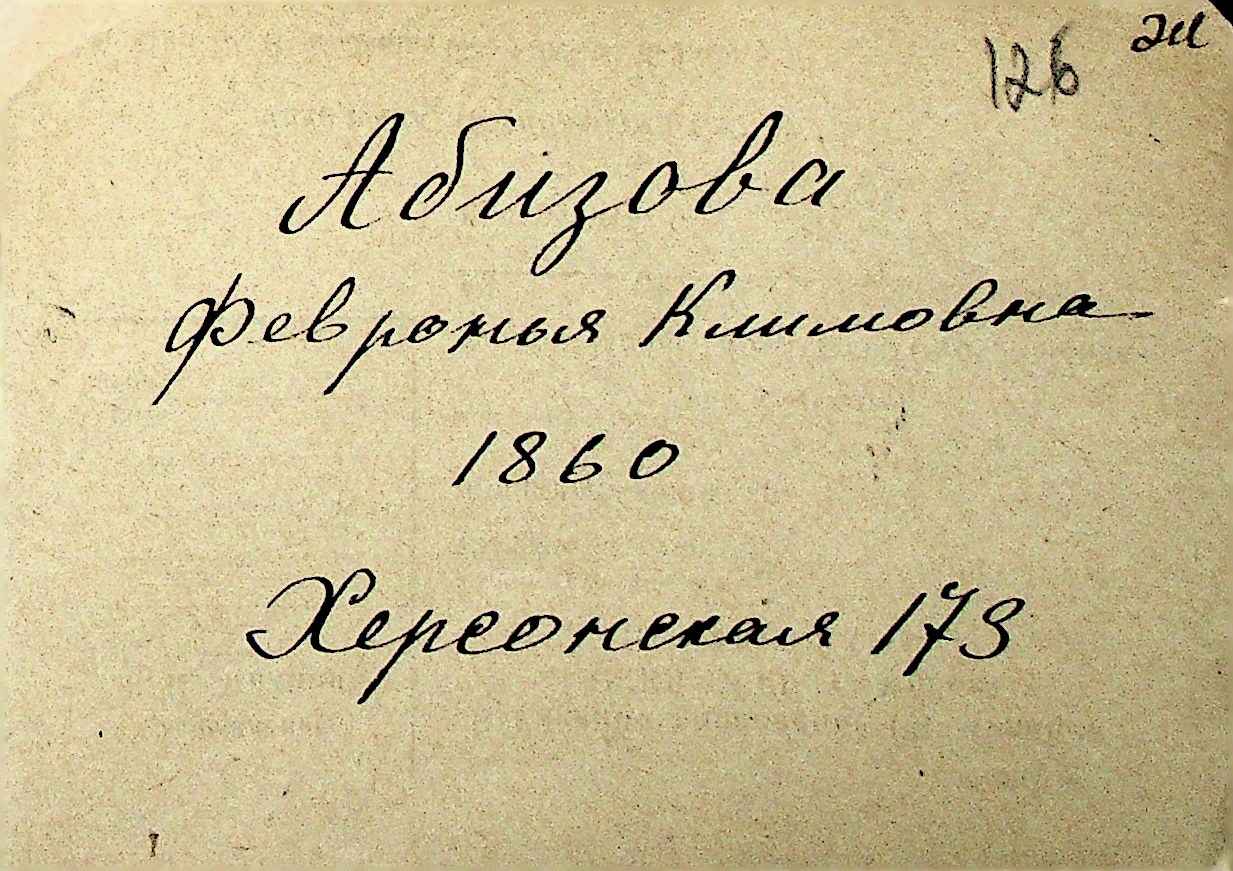 126
Абизова
Февронья Климовна
1860
Херсонская 173